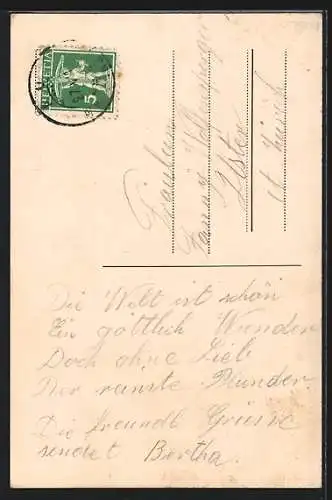 HELVETIA
5
Fräulein
Fanny
Uster
Kt Zürich
Die Welt ist schön
Ein göttlich Wunder
Doch ohne Lieb
Der reinste Plunder.
Die freundl Grüsse
sendet Bertha.